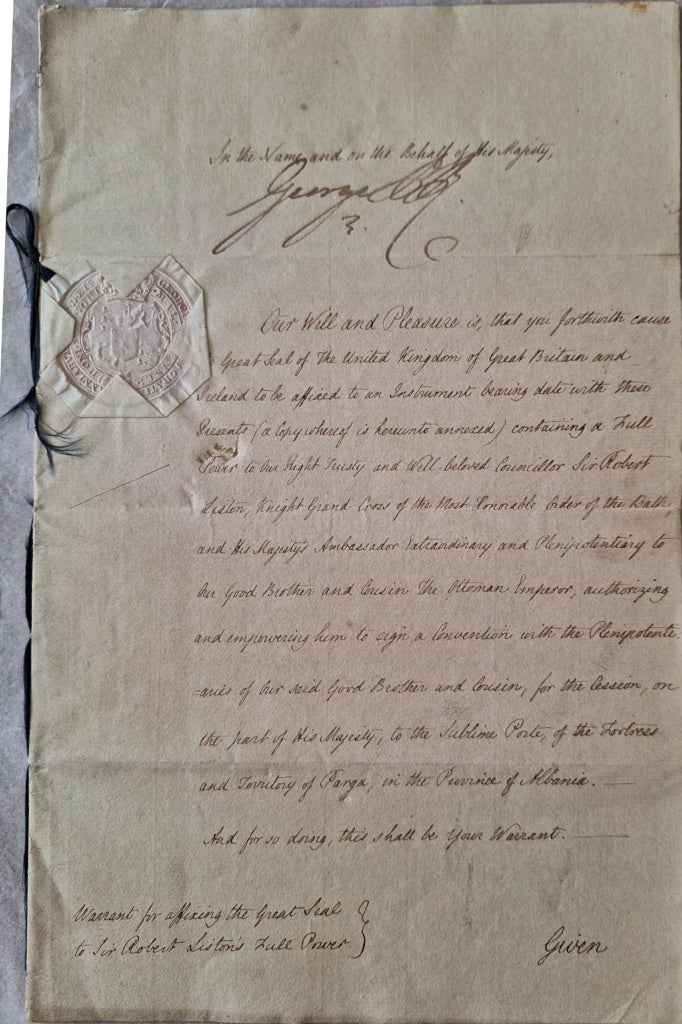 In the Name and on the Behalf of His Majesty,
George P R.
Our Will and Pleasure is, that you forthwith cause
Great Seal of the United Kingdom of Great Britain and
Ireland to be affixed to an Instrument bearing date with these
Presents (a Copy whereof is hereunto annexed) containing a Full
Power to Our Right Trusty and Well-beloved Councillor Sir Robert
Liston, Knight Grand Cross of the Most Honorable Order of the Bath,
and His Majesty's Ambassador Extraordinary and Plenipotentiary to
Our Good Brother and Cousin The Ottoman Emperor, authorizing
and empowering him to sign a Convention with the Plenipotenti-
-aries of Our said Good Brother and Cousin, for the Cession, on
the part of His Majesty, to the Sublime Porte, of the Fortress
and Territory of Parga, in the Province of Albania.
And for so doing, this shall be Your Warrant.
Warrant for affixing the Great Seal
to Sir Robert Liston's Full Power
Given